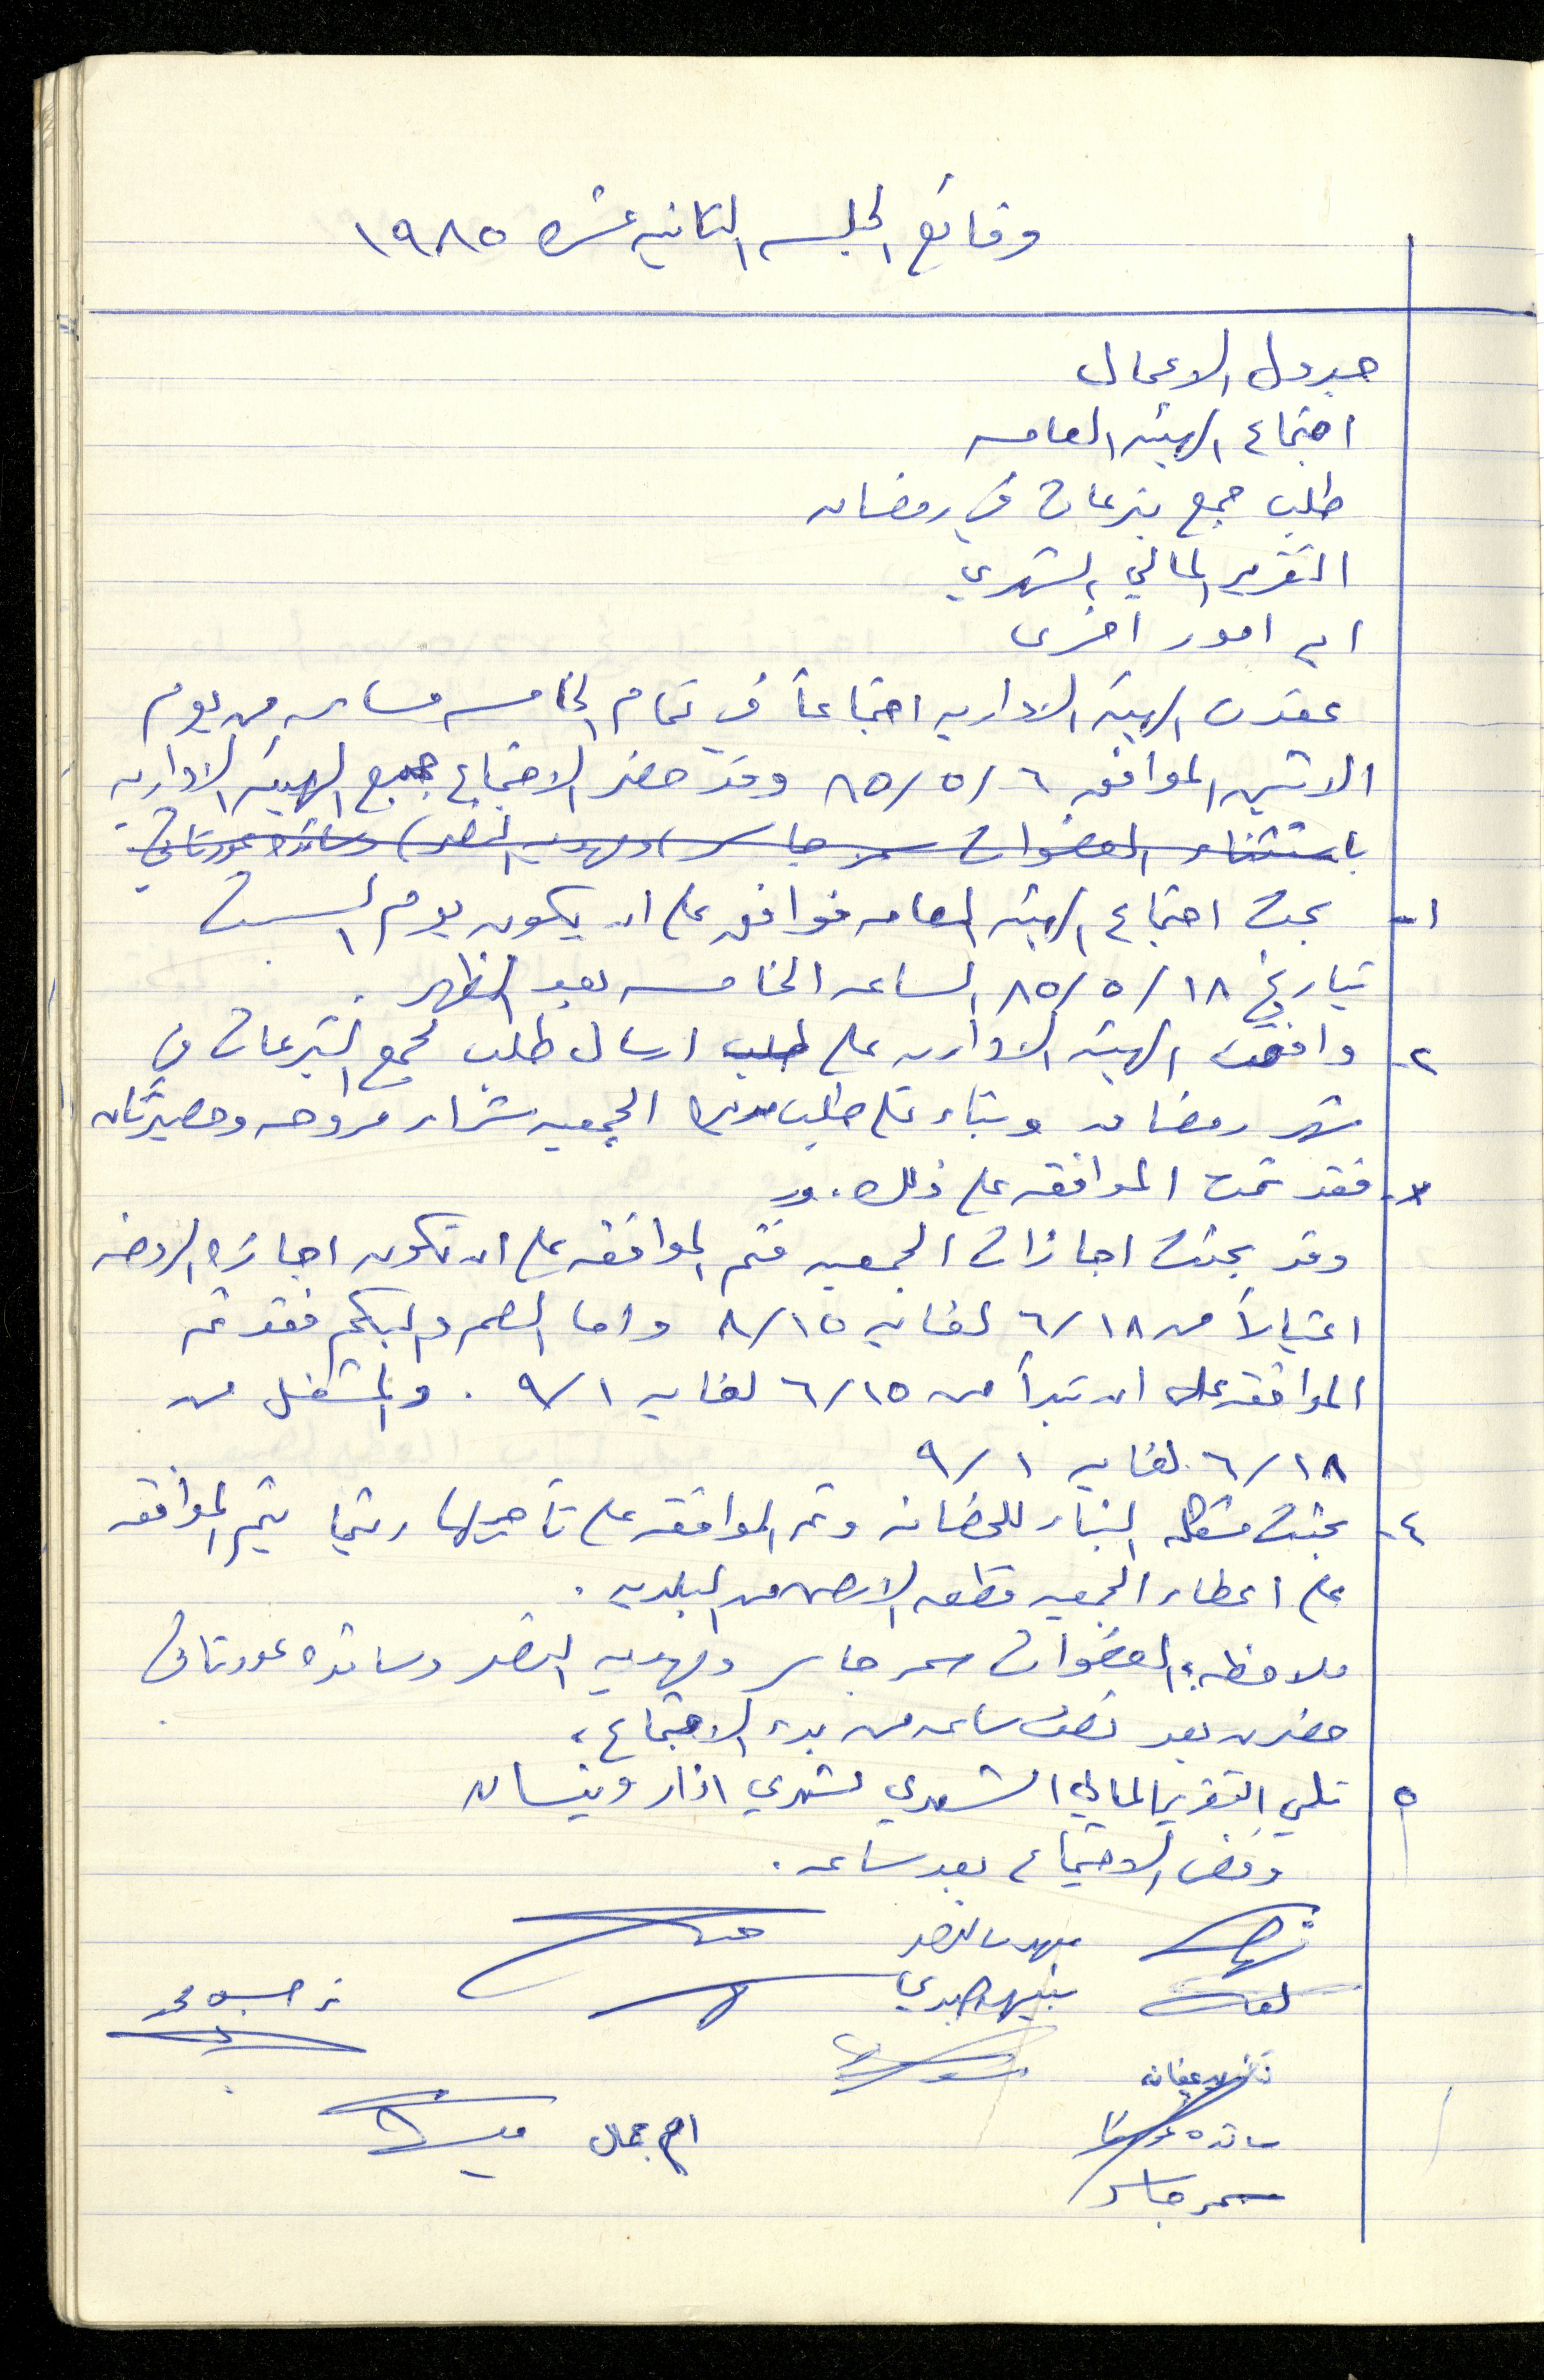 وقائع الجلسه الثانيه عشره ١٩٨٥
جدول الاعمال
اجتماع الهيئه العامه
طلب جمع تبرعات في رمضان
التقرير المالي الشهري
اي امور اخرى
عقدت الهيئه الاداريه اجتماعاً في تمام الخامسه مساء من يوم
الاثنين الموافق ٨٥/٥/٦ وقد حضر الاجتماع جميع الهيئه الاداريه
باستثناء العضوات سمر جابر ومهديه النصر وسائده عورتاني
١- بحث اجتماع الهيئه العامه فوافق على ان يكون يوم السبت
بتاريخ ٨٥/٥/١٨ الساعه الخامسه بعد الظهر.
٢- وافقت الهيئه الاداريه على طلب ارسال طلب لجمع التبرعات في
شهر رمضان وبناء على طلب الجمعيه شراء مروحه وحصيرتان
فقد تمت الموافقه على ذلك. و
٣- وقد بحثت اجازات الجمعيه فتم الموافقه على ان تكون اجازه الروضه
اعتباراً من ٦/١٨ لغايه ٨/١٥ واما الصم والبكم فقد تم
الموافقه على ان تبدأ من ٦/١٥ لغايه ٩/١. والمشغل من
٦/١٨ لغايه ٩/١
٤- بحثت مشكله البناء للحضانه وتم الموافقه على تأجيلها ريثما يتم الموافقه
على اعطاء الجمعيه قطعه الارض من البلديه.
ملاحظه: العضوات سمر جابر ومهديه النصر وسائده عورتاني
حضرن بعد نصف ساعه من بدء الاجتماع.
٥ تلي التقرير المالي الشهري لشهري اذار ونيسان
وفض الاجتماع بعد ساعه.
مهديه النصر
ام جمال
سائده
سمر جابر